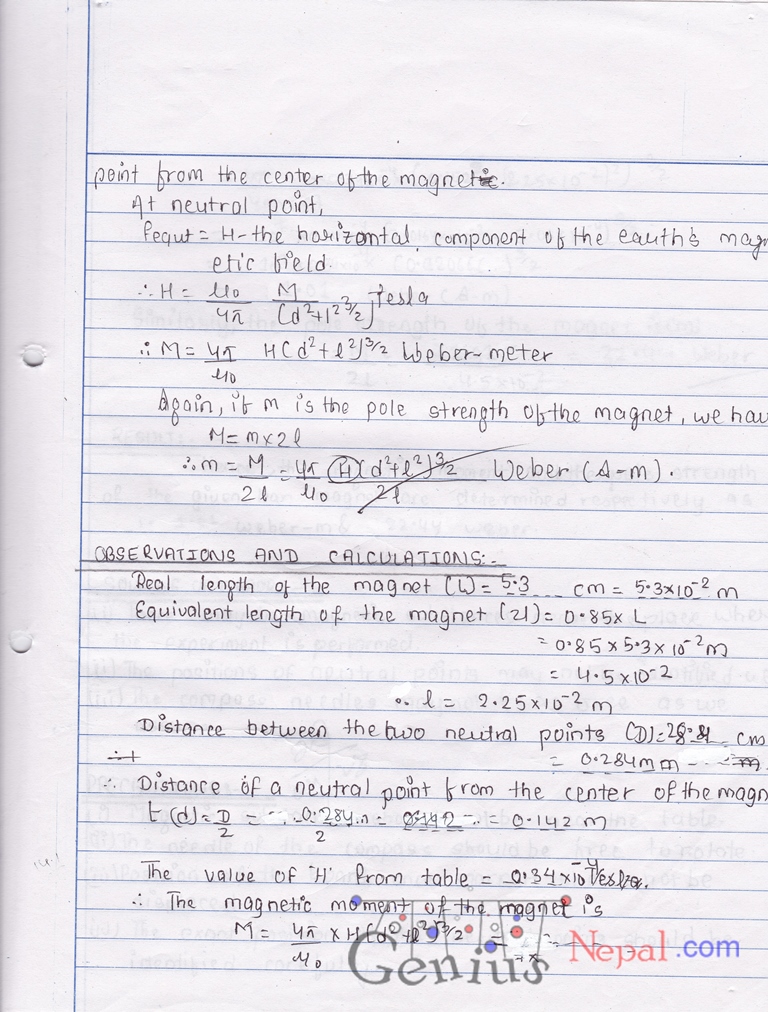 point from the center of the magnet.
At neutral point,
Fequt = H - the horizontal component of the earth's magn
etic field.
∴ H = μ0/4π M/(d²+l²)^3/2 Tesla
∴ M = 4π/μ0 H(d²+l²)^3/2 Weber-meter
Again, if m is the pole strength of the magnet, we hav
M = m×2l
∴ m = M/2l = 4π/μ0 H(d²+l²)^3/2/2l Weber (A-m).
OBSERVATIONS AND CALCULATIONS:-
Real length of the magnet (L) = 5.3 cm = 5.3×10⁻² m
Equivalent length of the magnet (2l) = 0.85× L
= 0.85×5.3×10⁻² m
= 4.5×10⁻²
∴ l = 2.25×10⁻² m
Distance between the two neutral points (D) = 28.4 cm
= 0.284 m
∴ Distance of a neutral point from the center of the magn
t (d) = D/2 = 0.284/2 = 0.142 = 0.142 m
The value of 'H' from table = 0.34×10⁻⁴ Tesla.
∴ The magnetic moment of the magnet is
M = 4π/μ0 × H(d²+l²)^3/2 =
Genius Nepal.com